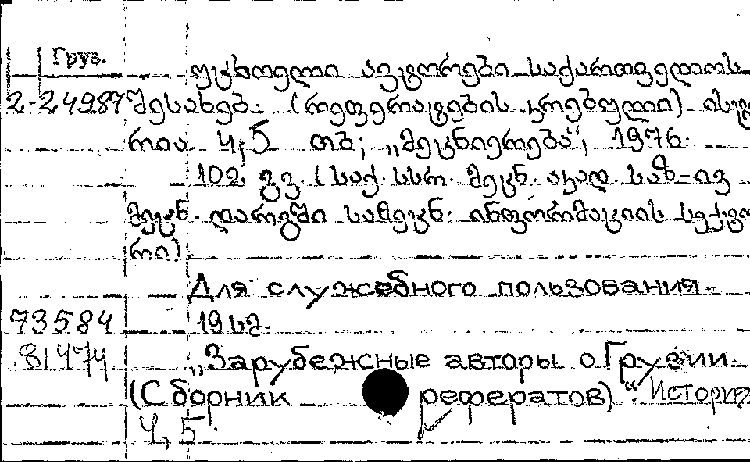 Груз.
უცხოელი ავტორები საქართველოს
2-24987 შესახებ. (რეფერატების კრებული) ისტ
რია 4,5 თბ; „მეცნიერება", 1976.
102 გვ. (საქ. სსრ. მეცნ. აკად. საზ-ივ
მეცნ. დარგში სამეცნ. ინფორმაციის სექტო
რი)
Для служебного пользования
73584 1962.
81474 „Зарубежные авторы о Грузии
(Сборник рефератов)". История
4,5.